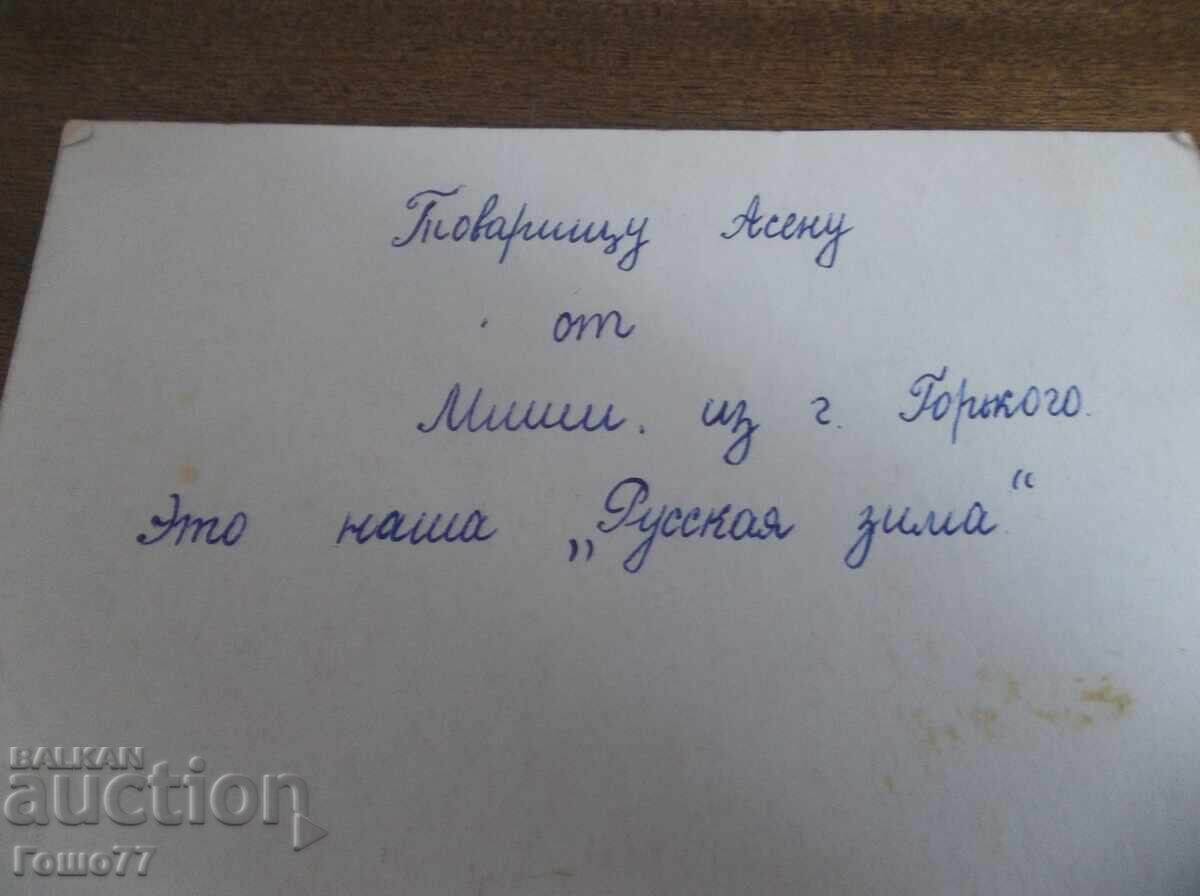 Товарищу Асену
от
Миши. из г. Горького.
Это наша „Русская зима."
BALKAN
auction
Гошо77